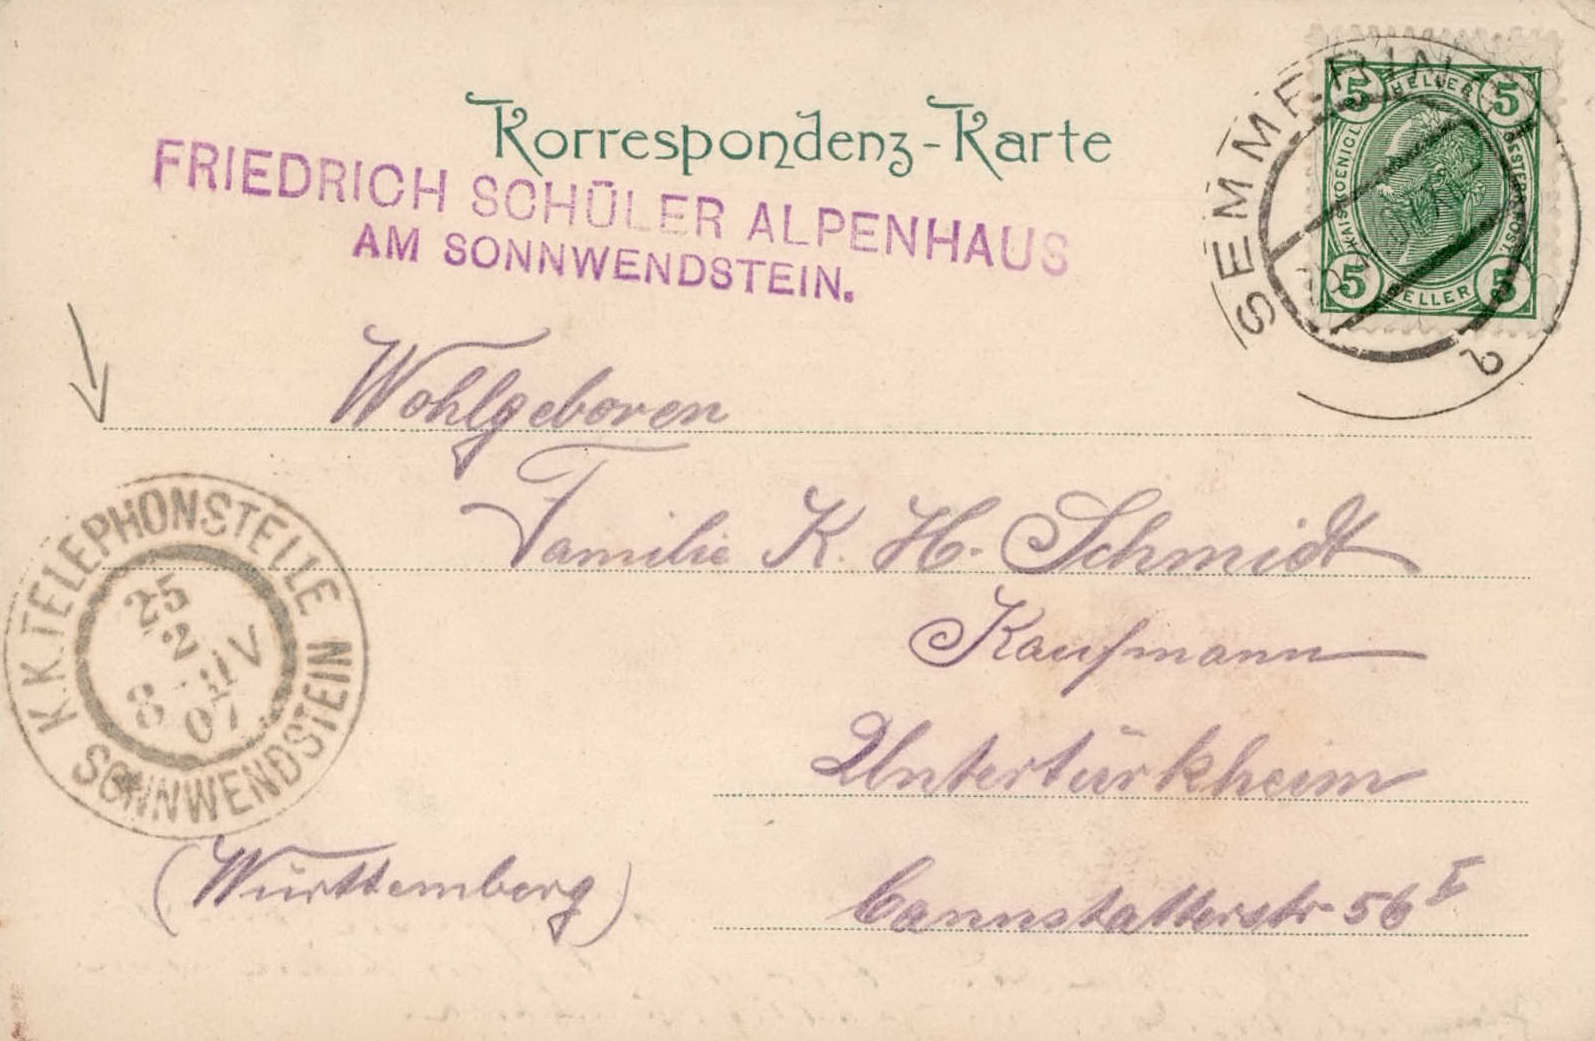 Korrespondenz-Karte
FRIEDRICH SCHÜLER ALPENHAUS
AM SONNWENDSTEIN.
SEMMERING
2
5 HELLER 5
KAIS. KOENIGL. OESTERR. POST
5 HELLER 5
Wohlgeboren
Familie K. H. Schmidt
Kaufmann
Untertürkheim
Cannstatterstr 56 I
(Württemberg)
K.K. TELEPHONSTELLE
25
2
8 07
SONNWENDSTEIN